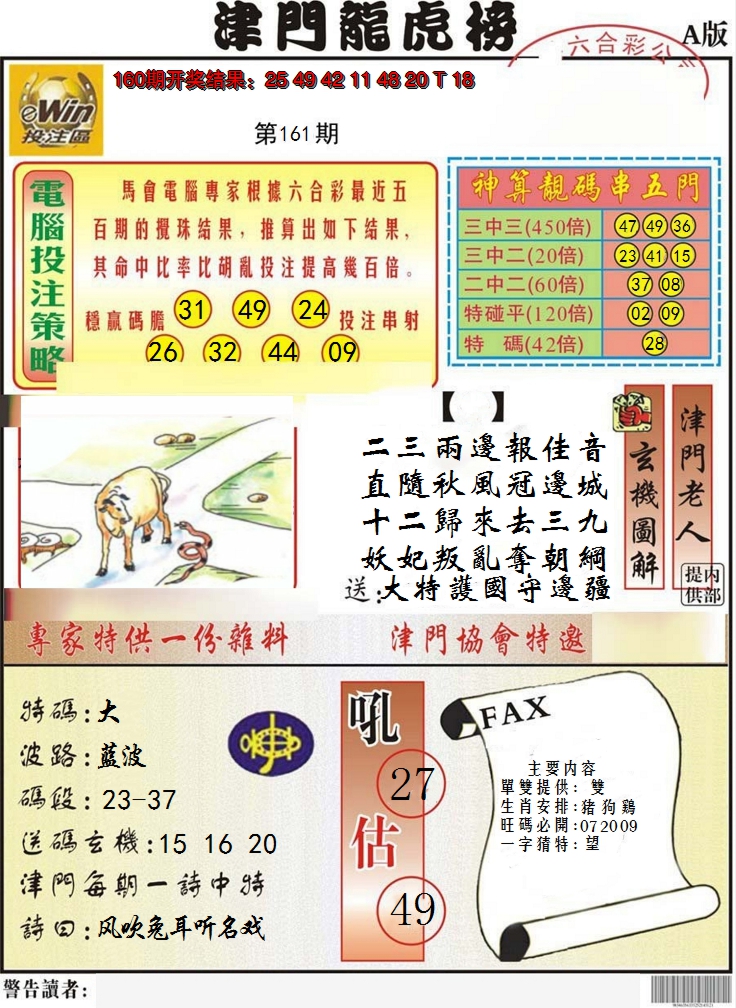 津門龍虎榜
A版
六合彩公
160期开奖结果：25 49 42 11 48 20 T 18
eWin
投注區
第161期
電腦投注策略
馬會電腦專家根據六合彩最近五
百期的攪珠结果，推算出如下结果，
其命中比率比胡亂投注提高幾百倍。
穩贏碼膽 31 49 24 投注串射
26 32 44 09
神算靚碼串五門
三中三(450倍) 47 49 36
三中二(20倍) 23 41 15
二中二(60倍) 37 08
特碰平(120倍) 02 09
特 碼(42倍) 28
【 】
二三兩邊報佳音
直隨秋風冠邊城
十二歸來去三九
妖妃叛亂奪朝綱
送:大特護國守邊疆
玄機圖解
津門老人
提供
内部
專家特供一份雜料
津門協會特邀
特碼:大
波路:藍波
碼段:23-37
送碼玄機:15 16 20
津門每期一詩中特
詩曰:风吹兔耳听名戏
吼
27
估
49
FAX
主要内容
單雙提供: 雙
生肖安排:豬狗鷄
旺碼必開:072009
一字猜特:望
警告讀者: